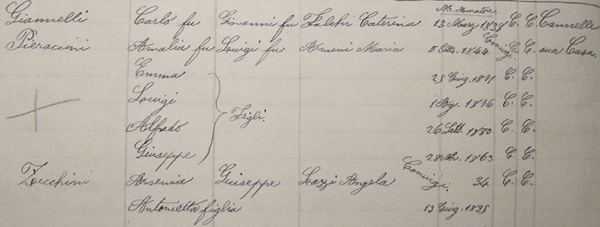 M. Muratore
Giannelli Carlo fu Giovanni fu Falchi Caterina 13 Marz. 1838 C. C. Cannelle
Pieraccini Amalia fu Luigi fu Armeni Maria 5 Ott. 1844 Coniugi C. C. sua Casa.
Emma 25 Giug. 1871 C. C.
Luigi 1876 C. C.
Alfredo Figli. 26 Febb. 1880 C. C.
Giuseppe 1863 C. C.
Zecchini Arsenia Giuseppe Lazzi Angela Coniugi. 34 C. C.
Antonietta figlia 13 Giug. 1895